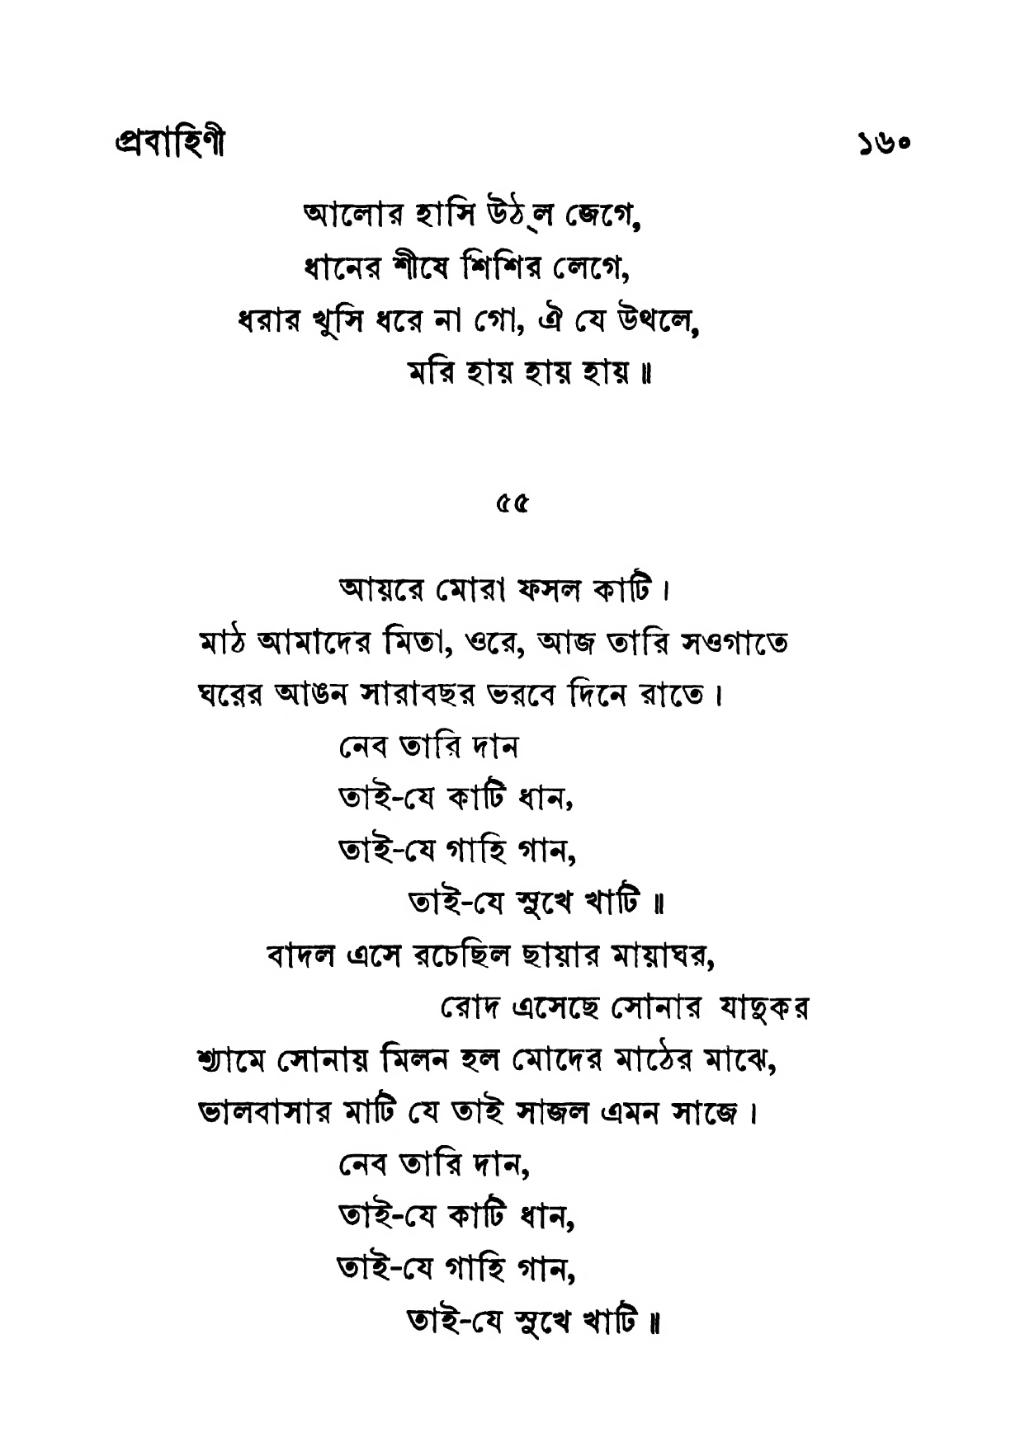 প্রবাহিণী ১৬০
আলোর হাসি উঠ্‌ল জেগে,
ধানের শীষে শিশির লেগে,
ধরার খুসি ধরে না গো, ঐ যে উথলে,
মরি হায় হায় হায় ॥
৫৫
আয়রে মোরা ফসল কাটি।
মাঠ আমাদের মিতা, ওরে, আজ তারি সওগাতে
ঘরের আঙন সারাবছর ভরবে দিনে রাতে।
নেব তারি দান
তাই-যে কাটি ধান,
তাই-যে গাহি গান,
তাই-যে সুখে খাটি ॥
বাদল এসে রচেছিল ছায়ার মায়াঘর,
রোদ এসেছে সোনার যাদুকর
শ্যামে সোনায় মিলন হল মোদের মাঠের মাঝে,
ভালবাসার মাটি যে তাই সাজল এমন সাজে।
নেব তারি দান,
তাই-যে কাটি ধান,
তাই-যে গাহি গান,
তাই-যে সুখে খাটি ॥